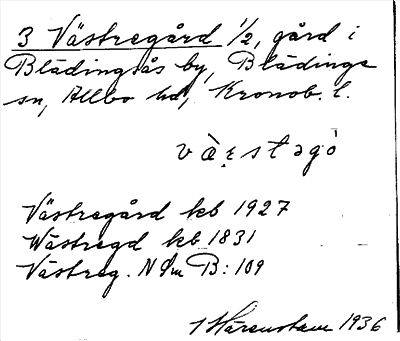 3 Västregård 1/2, gård i
Blädingsås by, Blädinge
sn, Allbo hd, Kronob. l.
vàr̥stəgò
Västregård kb 1927
Wästregd kb 1831
Västreg. N Sm B: 109
Härenstam 1936